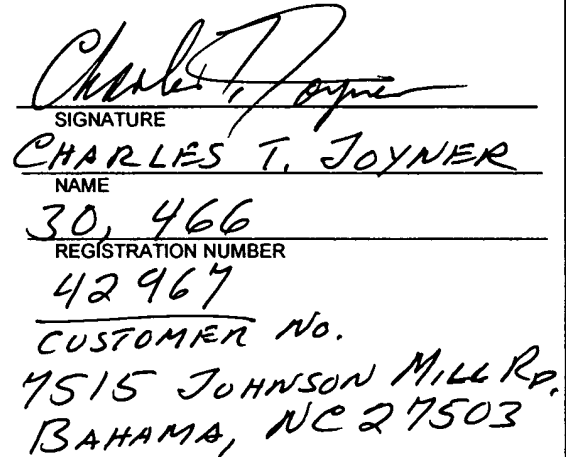 Charles T. Joyner
SIGNATURE
CHARLES T. JOYNER
NAME
30, 466
REGISTRATION NUMBER
42967
CUSTOMER NO.
7515 JOHNSON MILL RD.
BAHAMA, NC 27503